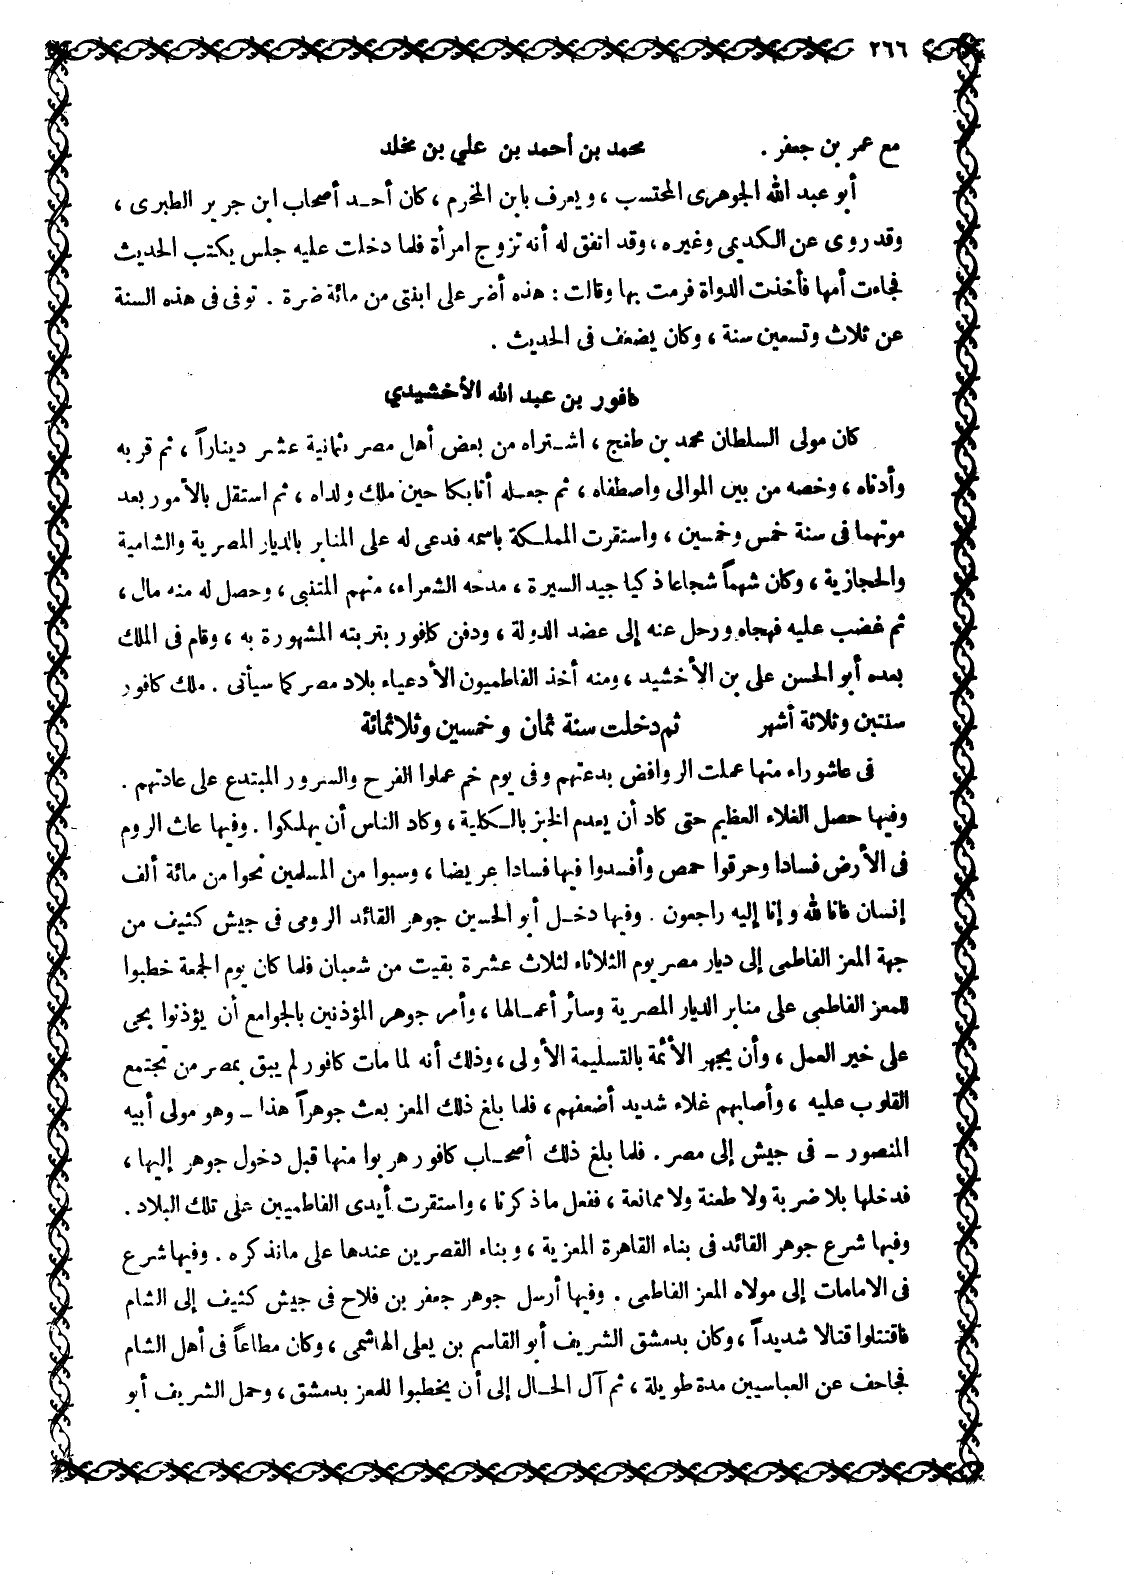 ٢٦٦
مع عمر بن جعفر . محمد بن أحمد بن علي بن مخلد
أبو عبد الله الجوهرى المحتسب ، ويعرف بابن المخرم ، كان أحـد أصحاب ابن جرير الطبرى ،
وقد روى عن الكديمى وغيره ، وقد اتفق له أنه تزوج امرأة فلما دخلت عليه جلس يكتب الحديث
فجاءت أمها فأخذت الدواة فرمت بها وقالت : هذه أضر على ابنتى من مائة ضرة . توفى فى هذه السنة
عن ثلاث وتسعين سنة ، وكان يضعف فى الحديث .
كافور بن عبد الله الأخشيدي
كان مولى السلطان محمد بن طغج ، اشـتراه من بعض أهل مصر بثمانية عشر ديناراً ، ثم قربه
وأدناه ، وخصه من بين الموالى واصطفاه ، ثم جعـله أتابكا حين ملك ولداه ، ثم استقل بالأمور بعد
موتهما فى سنة خمس وخمسين ، واستقرت المملـكة باسمه فدعى له على المنابر بالديار المصرية والشامية
والحجازية ، وكان شهماً شجاعا ذكيا جيد السيرة ، مدحه الشعراء، منهم المتنبى ، وحصل له منه مال ،
ثم غضب عليه فهجاه ورحل عنه إلى عضد الدولة ، ودفن كافور بتربته المشهورة به ، وقام فى الملك
بعده أبو الحسن على بن الأخشيد ، ومنه أخذ الفاطميون الأدعياء بلاد مصر كما سيأتى . ملك كافور
سنتين وثلاثة أشهر ثم دخلت سنة ثمان و خمسين وثلاثمائة
فى عاشوراء منها عملت الروافض بدعتهم وفى يوم خم عملوا الفرح والسرور المبتدع على عادتهم .
وفيها حصل الغلاء العظيم حتى كاد أن يعدم الخبز بالـكلية ، وكاد الناس أن يهلـكوا . وفيها عاث الروم
فى الأرض فسادا وحرقوا حمص وأفسدوا فيها فسادا عريضا ، وسبوا من المسلمين نحوا من مائة ألف
إنسان فانا لله و إنا إليه راجعون . وفيها دخـل أبو الحسين جوهر القائد الرومى فى جيش كثيف من
جهة المعز الفاطمى إلى ديار مصر يوم الثلاثاء لثلاث عشرة بقيت من شعبان فلما كان يوم الجمعة خطبوا
للمعز الفاطمى على منابر الديار المصرية وسائر أعمـالها ، وأمر جوهر المؤذنين بالجوامع أن يؤذنوا بحى
على خير العمل ، وأن يجهر الأئمة بالتسليمة الأولى ، وذلك أنه لما مات كافور لم يبق بمصر من تجتمع
القلوب عليه ، وأصابهم غلاء شديد أضعفهم ، فلما بلغ ذلك المعز بعث جوهراً هذا ــ وهو مولى أبيه
المنصور ــ فى جيش إلى مصر . فلما بلغ ذلك أصحـاب كافور هربوا منها قبل دخول جوهر إليها ،
فدخلها بلا ضربة ولا طعنة ولا ممانعة ، ففعل ما ذكرنا ، واستقرت أيدى الفاطميين على تلك البلاد .
وفيها شرع جوهر القائد فى بناء القاهرة المعزية ، وبناء القصرين عندها على مانذكره . وفيها شرع
فى الامامات إلى مولاه المعز الفاطمى . وفيها أرسل جوهر جعفر بن فلاح فى جيش كثيف إلى الشام
فاقتتلوا قتالا شديداً ، وكان بدمشق الشريف أبو القاسم بن يعلى الهاشمى ، وكان مطاعاً فى أهل الشام
فجاحف عن العباسيين مدة طويلة ، ثم آل الحـال إلى أن يخطبوا للمعز بدمشق ، وحمل الشريف أبو